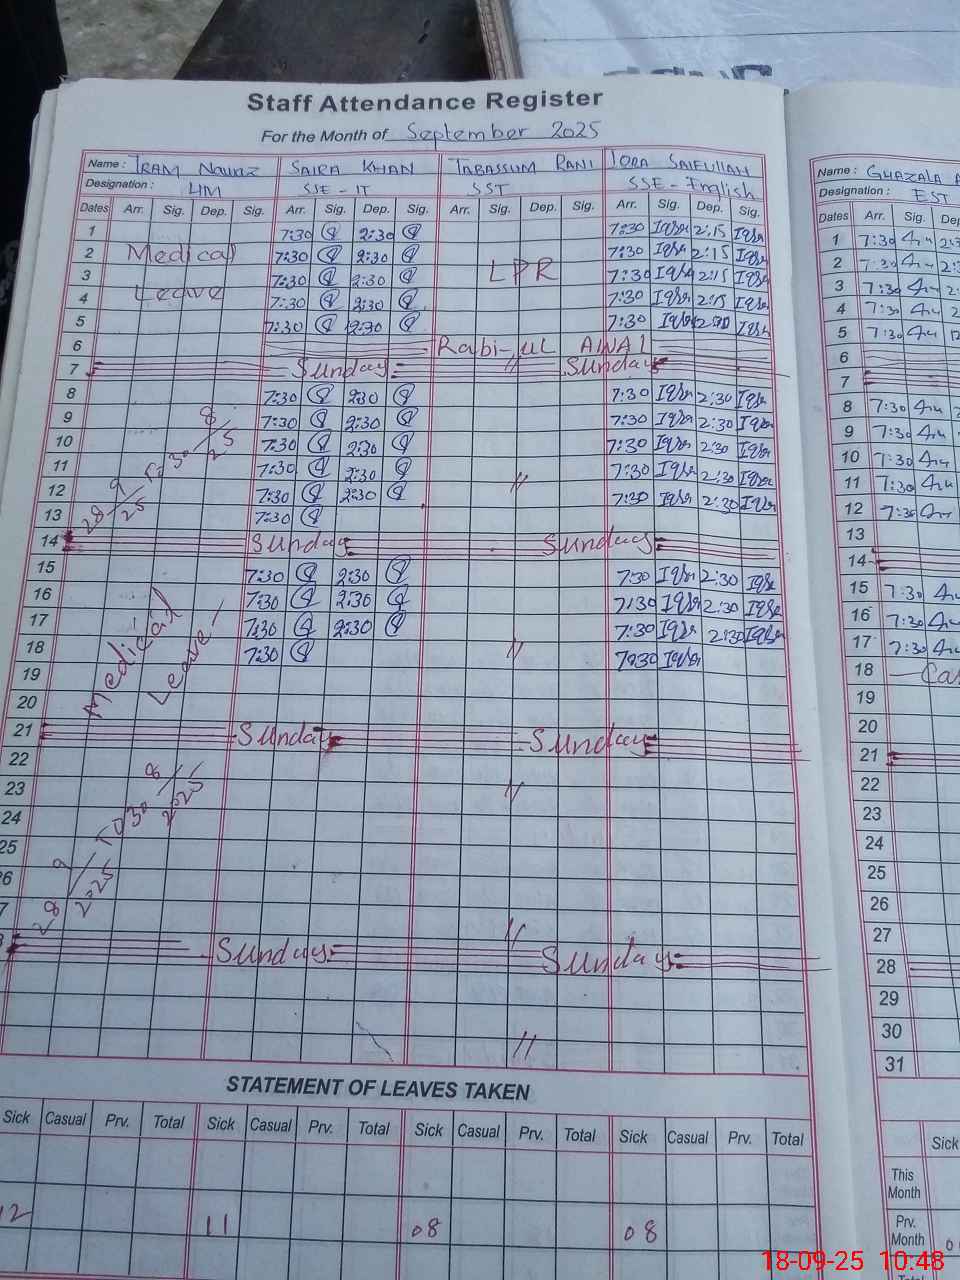 Staff Attendance Register
For the Month of September 2025
Name : IRAM Nawaz SAIRA KHAN TABASSUM RANI IQRA SAIFULLAH
Designation : HM SSE - IT SST SSE - English
Dates Arr. Sig. Dep. Sig. Arr. Sig. Dep. Sig. Arr. Sig. Dep. Sig. Arr. Sig. Dep. Sig.
1 7:30 2:30 7:30 Iqra 2:15 Iqra
2 Medical 7:30 2:30 7:30 Iqra 2:15 Iqra
3 7:30 2:30 LPR 7:30 Iqra 2:15 Iqra
4 Leave 7:30 2:30 7:30 Iqra 2:15 Iqra
5 7:30 2:30 7:30 Iqra Iqra
6 Rabi-ul AWAL
7 Sunday // Sunday
8 7:30 2:30 7:30 Iqra 2:30 Iqra
9 7:30 2:30 7:30 Iqra 2:30 Iqra
10 7:30 2:30 7:30 Iqra 2:30 Iqra
11 7:30 2:30 // 7:30 Iqra 2:30 Iqra
12 7:30 2:30 7:30 Iqra 2:30 Iqra
13 7:30
14 Sunday Sunday
15 7:30 2:30 7:30 Iqra 2:30 Iqra
16 7:30 2:30 7:30 Iqra 2:30 Iqra
17 7:30 2:30 7:30 Iqra 2:30 Iqra
18 7:30 // 7:30 Iqra
19
20
21 Sunday Sunday
22
23 //
24
25
Medical
Leave
Sunday // Sunday
//
STATEMENT OF LEAVES TAKEN
Sick Casual Prv. Total Sick Casual Prv. Total Sick Casual Prv. Total Sick Casual Prv. Total
12 11 08 08
Name : GHAZALA
Designation : EST
Dates Arr. Sig. Dep.
1 7:30
2 7:30
3 7:30
4 7:30
5 7:30
6
7
8 7:30
9 7:30
10 7:30
11 7:30
12 7:30
13
14
15 7:30
16 7:30
17 7:30
18
19
20
21
22
23
24
25
26
27
28
29
30
31
Sick
This Month
Prv. Month
18-09-25 10:48